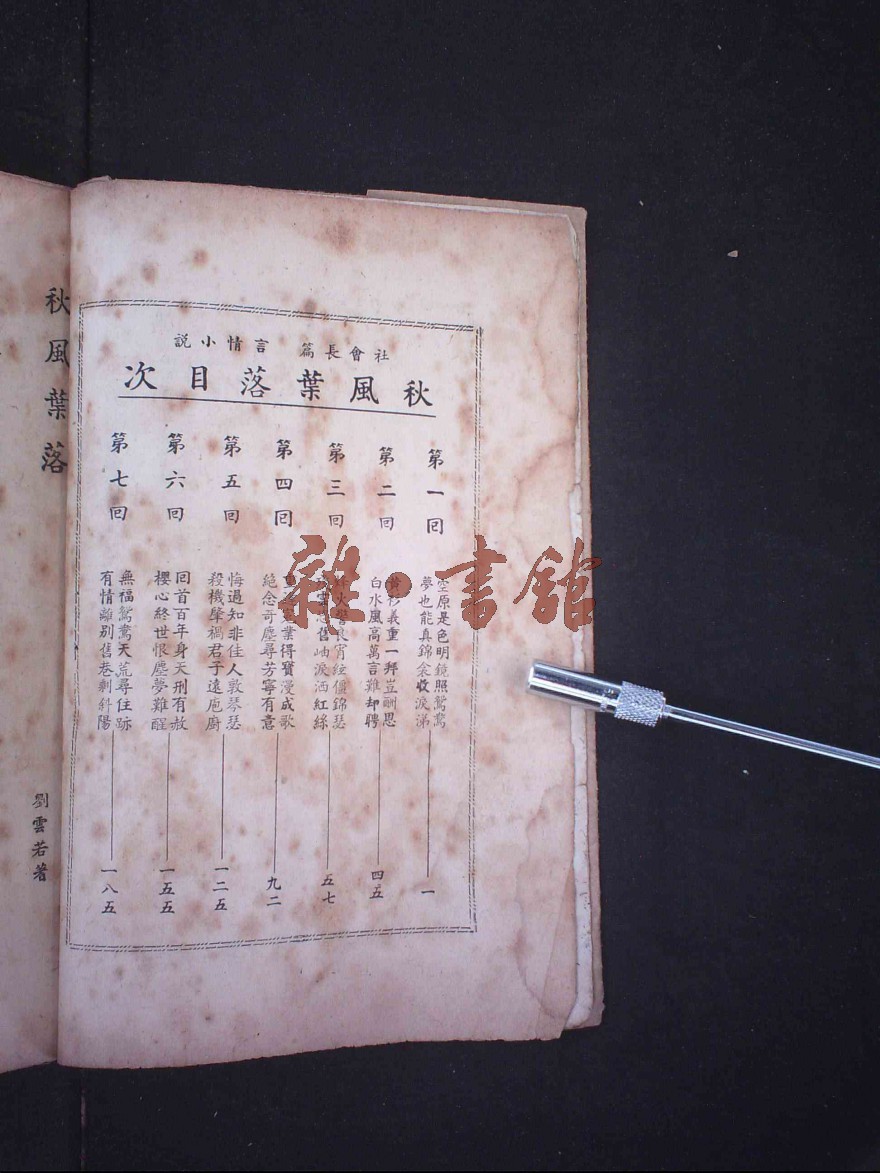 社會長篇 言情小說
秋風葉落目次
第一回
空原是色明鏡照鴛鴦
夢也能真錦衾收淚涕
一
第二回
黃衫義重一拜豈酬恩
白水風高萬言難却聘
四五
第三回
宵絃僵錦瑟
舊岫淚洒紅綠
五七
第四回
業得寶漫成歌
絕念哥塵尋芳寧有意
九二
第五回
悔過知非佳人敦琴瑟
殺機肇禍君子遠庖廚
一二五
第六回
回首百年身天刑有赦
櫻心終世恨塵夢難醒
一五五
第七回
無福鴛鴦天荒尋住跡
有情離別舊巷剩斜陽
一八五
秋風葉落
劉雲若著
雜·書館